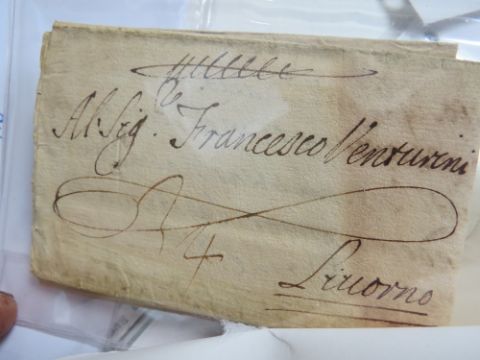 Al Sig.re Francesco Venturini
4
Livorno